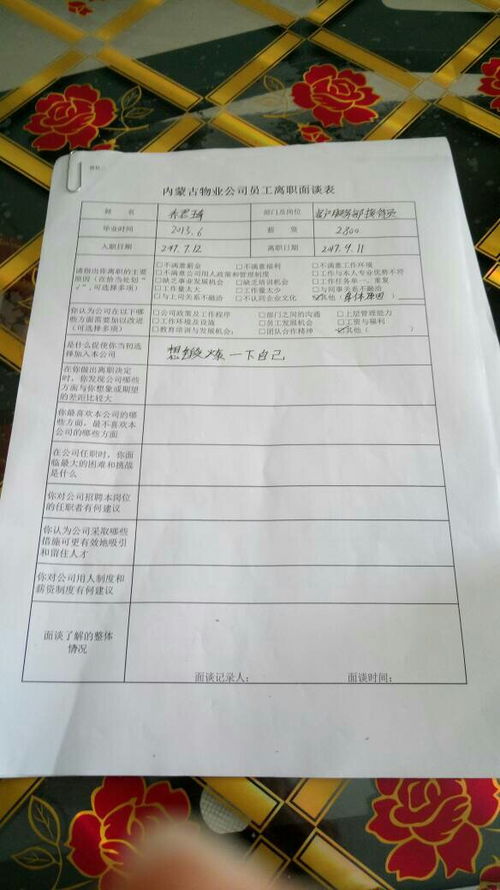 内蒙古物业公司员工离职面谈表
姓 名 部门及岗位 客户服务部接待员
毕业时间 2013.6 薪 资 2800
入职日期 2017.7.12 离职日期 2017.9.11
请指出你离职的主要原因（在恰当处划"√"，可选择多项）
□不满意薪金 □不满意福利 □不满意工作环境
□不满意公司用人政策和管理制度 □工作与本人专业优势不符
□缺乏事业发展机会 □缺乏培训机会 □工作任务单一、重复
□工作量太大 □工作量太少 □与同事关系不融洽
□与上司关系不融洽 □不认同企业文化 ☑其他（身体原因）
你认为公司在以下哪些方面需要加以改进（可选择多项）
□公司政策及工作程序 □部门之间的沟通 □上层管理能力
□工作环境及设施 □员工发展机会 □工资与福利
□教育培训与发展机会； □团队合作精神 ☑其他（ ）
是什么促使你当初选择加入本公司
想锻炼一下自己
在你做出离职决定时，你发现公司哪些方面与你想象或期望的差距比较大
你最喜欢本公司的哪些方面，最不喜欢本公司的哪些方面
在公司任职时，你面临最大的困难和挑战是什么
你对公司招聘本岗位的任职者有何建议
你认为公司采取哪些措施可更有效地吸引和留住人才
你对公司用人制度和薪资制度有何建议
面谈了解的整体情况
面谈记录人： 面谈时间：